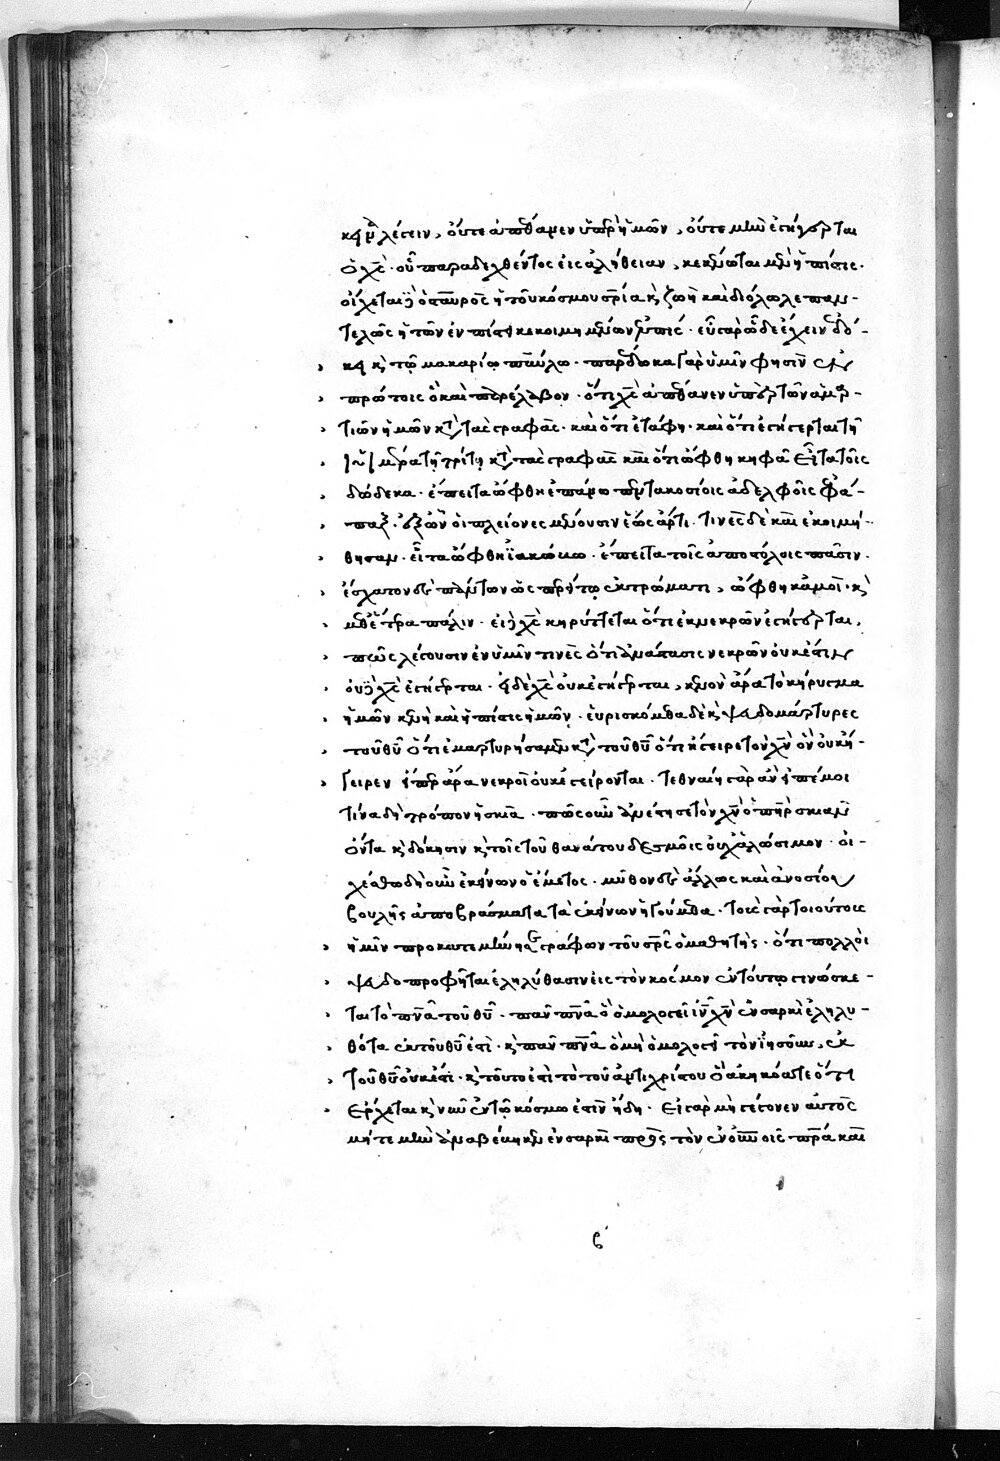 καμεῖ λέγειν, οὔτε ἀπέθανεν ὑπὲρ ἡμῶν, οὔτε μὴν ἐγήγερται
ὁ χς. οὗ παραδεχθέντος εἰς ἀλήθειαν, κεκένωται μὲν ἡ πίστις.
οἴχεται δὲ ὁ σταυρὸς ἡ τοῦ κόσμου σρία κ ζωὴ καὶ διόλωλε παν-
τελῶς ἡ τῶν ἐν πίστει κεκοιμημένων ἐλπίς. εὖ γὰρ ὧδε ἔχειν δο-
κεῖ κ τῷ μακαρίῳ παύλῳ. παρέδωκα γὰρ ὑμῖν φησιν ἐν
πρώτοις ὃ καὶ παρέλαβον. ὅτι χς ἀπέθανεν ὑπὲρ τῶν ἁμαρ-
τιῶν ἡμῶν κατὰ τὰς γραφάς. καὶ ὅτι ἐτάφη. καὶ ὅτι ἐγήγερται τῇ
ἡμέρα τῇ τρίτῃ κατὰ τὰς γραφάς καὶ ὅτι ὤφθη κηφᾶ εἶτα τοῖς
δώδεκα. ἔπειτα ὤφθη ἐπάνω πεντακοσίοις ἀδελφοῖς ἐφά-
παξ. ἐξ ὧν οἱ πλείονες μένουσιν ἕως ἄρτι. τινὲς δὲ καὶ ἐκοιμή-
θησαν. εἶτα ὤφθη ἰακώβω. ἔπειτα τοῖς ἀποστόλοις πᾶσιν.
ἔσχατον δὲ πάντων ὡς περεὶ τῷ ἐκτρώματι, ὤφθη κἀμοί. κ
μεθ' ἕτερα πάλιν. εἰ δὲ χς κηρύττεται ὅτι ἐκ νεκρῶν ἐγήγερται,
πῶς λέγουσιν ἐν ὑμῖν τινὲς ὅτι ἀνάστασις νεκρῶν οὐκ ἔστιν
οὐδὲ χς ἐγήγερται. εἰ δὲ χς οὐκ ἐγήγερται, κενὸν ἄρα τὸ κήρυγμα
ἡμῶν κενὴ καὶ ἡ πίστις ἡμῶν. εὑρισκόμεθα δὲ κ ψευδομάρτυρες
τοῦ θυ ὅτι ἐμαρτυρήσαμεν κατὰ τοῦ θυ ὅτι ἤγειρε τὸν χν ὃν οὐκ ἤ-
γειρεν εἴπερ ἄρα νεκροὶ οὐκ ἐγείρονται. τεθναίη γὰρ ἂν εἰπέ μοι
τίνα δὴ τρόπον ἡ σκιά. πῶς οὖν ἀνέστησε τὸν χν ὁ πηρ σκιὰν
ὄντα κ δόκησιν κ τοῖς τοῦ θανάτου δεσμοῖς οὐχ ἁλώσιμον. οἰ-
χέσθω δὴ οὖν ἐκείνων ὁ ἔμετος. μῦθον δὲ ἄλλως καὶ ἀνοσίου
βουλῆς ἀποβράσματα τὰ ἐκείνων ἡγούμεθα. τοὺς γὰρ τοιούτους
ἡμῖν προκατεμήνυε γράφων τοῦ σρς ὁ μαθητής. ὅτι πολλοὶ
ψευδοπροφῆται ἐληλύθασιν εἰς τὸν κόσμον ἐν τούτῳ γινώσκε-
ται τὸ πνα τοῦ θυ. πᾶν πνα ὃ ὁμολογεῖ ιν χν ἐν σαρκὶ ἐληλυ-
θότα ἐκ τοῦ θυ ἐστι. κ πᾶν πνα ὃ μὴ ὁμολογεῖ τὸν ἰησοῦν, ἐκ
τοῦ θυ οὐκ ἔστι. κ τοῦτο ἐστὶ τὸ τοῦ ἀντιχρίστου ὃ ἀκηκόατε ὅτι
ἔρχεται κ νῦν ἐν τῷ κόσμω ἐστὶν ἤδη. εἰ γὰρ μὴ γέγονεν αὐτὸς
μήτε μὴν ἀναβέβηκεν ἐν σαρκὶ πρὸς τὸν ἐν οὐνοις πρα καὶ